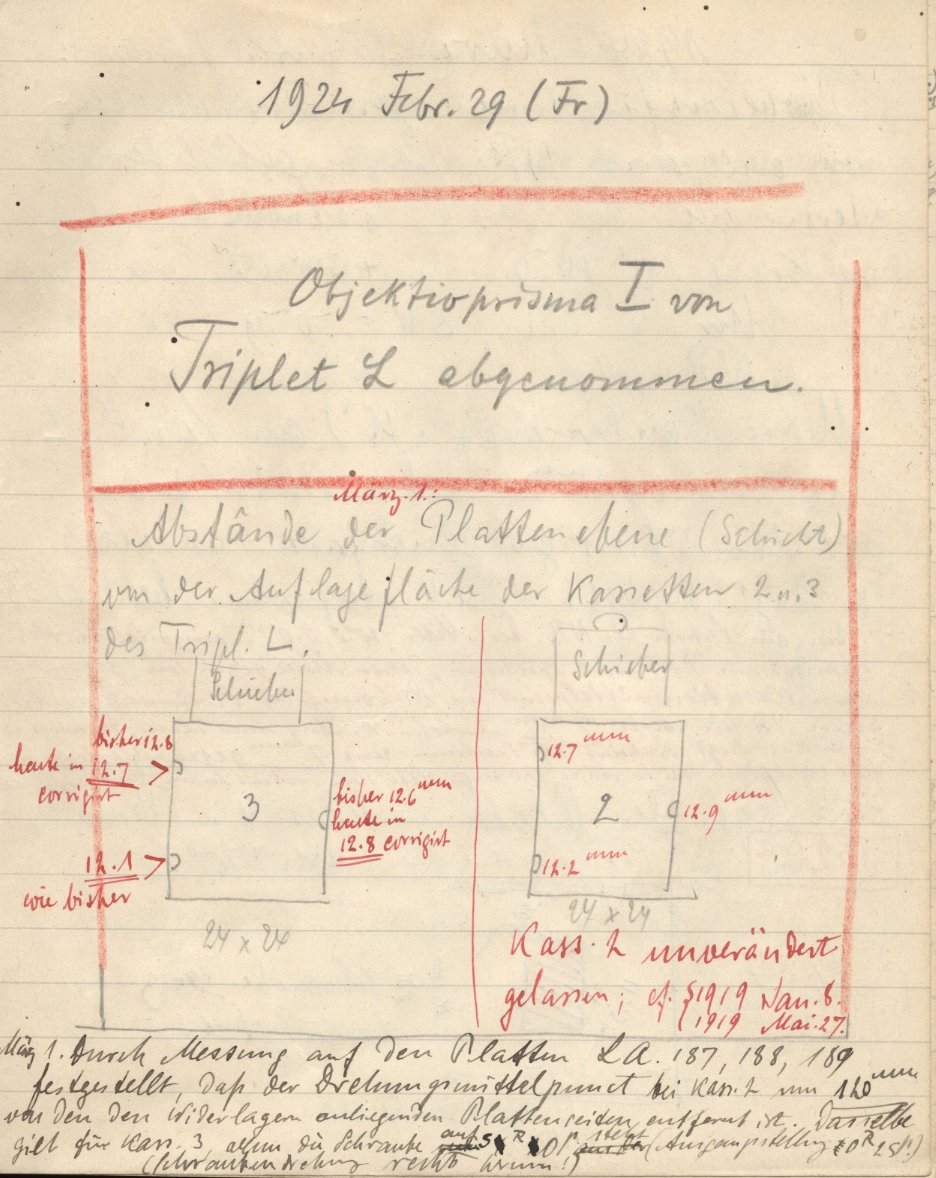 1924 Febr. 29 (Fr)
Objektivprisma I von
Triplet L abgenommen.
März 1.:
Abstände der Plattenebene (Schicht)
von der Auflagefläche der Kassetten 2 u. 3
des Tripl. L.
Schieber
Schieber
bisher 12.8
heute in 12.7
corrigirt
3
bisher 12.6 mm
heute in
12.8 corrigirt
12.1
wie bisher
24 x 24
12.7 mm
2
12.9 mm
12.2 mm
24 x 24
Kass. 2 unverändert
gelassen; cf. { 1919 Jan. 8.
1919 Mai 27.
März 1. Durch Messung auf den Platten LA. 187, 188, 189
festgestellt, daß der Drehungsmittelpunct bei Kass. 2 um 120 mm
von den den Widerlagern anliegenden Plattenseiten entfernt ist. Dasselbe
gilt für Kass. 3 wenn die Schraube auf 5 R 0 P steht (Ausgangsstellung 0 R 25 P.)
(Schraubendrehung rechts herum!)